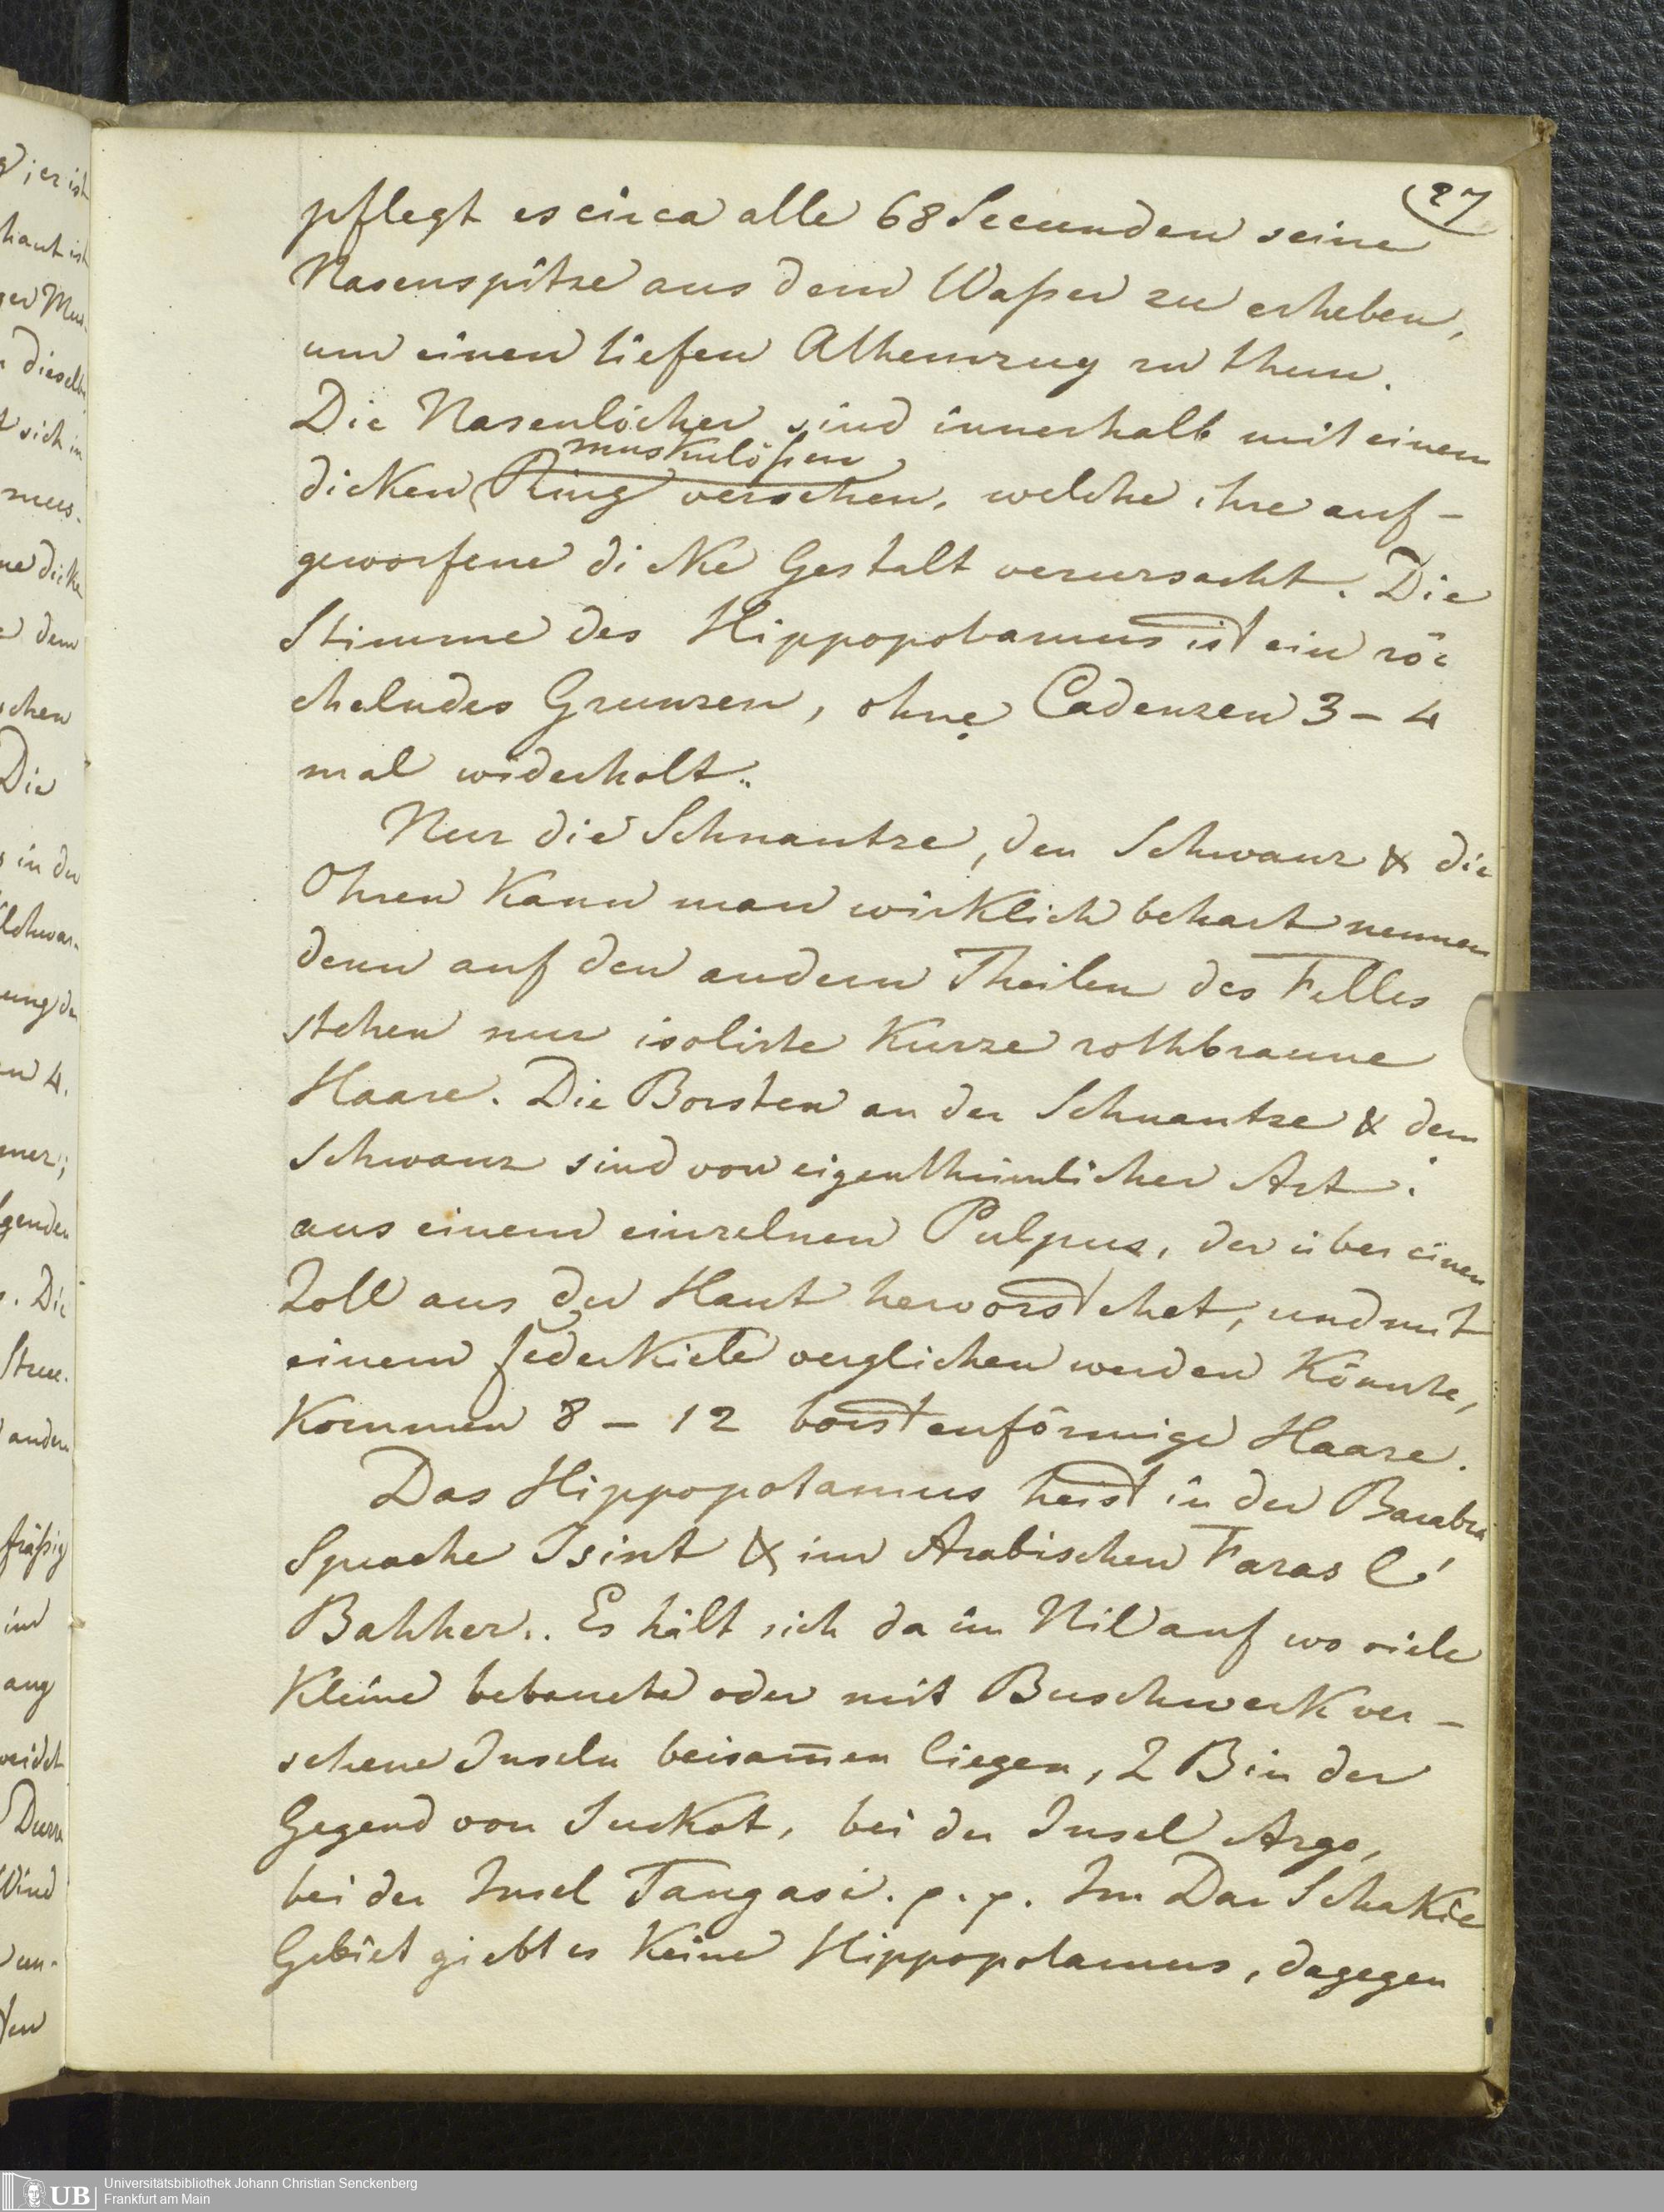 27
pflegt es circa alle 68 Secunden seine
Nasenspitze aus dem Waßer zu erheben,
um einen tiefen Athemzug zu thun.
Die Nasenlöcher sind innerhalb mit einem
muskulößen
dicken Ring versehen, welche ihre auf-
geworfene dicke Gestalt verursacht. Die
Stimme des Hippopotamus ist ein rö-
chelndes Grunzen, ohne Cadenzen 3 – 4
mal widerholt.
Nur die Schnautze, den Schwanz & die
Ohren kann man wirklich behart nennen
denn auf den andern Theilen des Felles
stehen nur isolirte kurze rothbraune
Haare. Die Borsten an der Schnautze & dem
Schwanz sind von eigenthümlicher Art:
aus einem einzelnen Pulpus, der über einen
Zoll aus der Haut hervorstehet, und mit
einem Federkiele verglichen werden könnte,
kommen 8 – 12 borstenförmige Haare.
Das Hippopotamus heist in der Barabra
Sprache Isint & im Arabischen Faras l'
Bahher.. Es hält sich da im Nil auf wo viele
kleine bebauete oder mit Buschwerk ver-
sehene Inseln beisam̅en liegen, Z B in der
Gegend von Suckot, bei der Insel Argo,
bei der Insel Tangasi. p. p. Im Dar Schakie
Gebiet giebt es keine Hippopotamus, dagegen
; er ist
haut ist
ger Mus-
dieselbe
sich in
mus-
dicke
dem
schen
Die
in der
Schwan-
ung der
4.
genden
Die
andern
fräßig
im
ang
Durra
Wind
un-
Universitätsbibliothek Johann Christian Senckenberg
Frankfurt am Main
UB